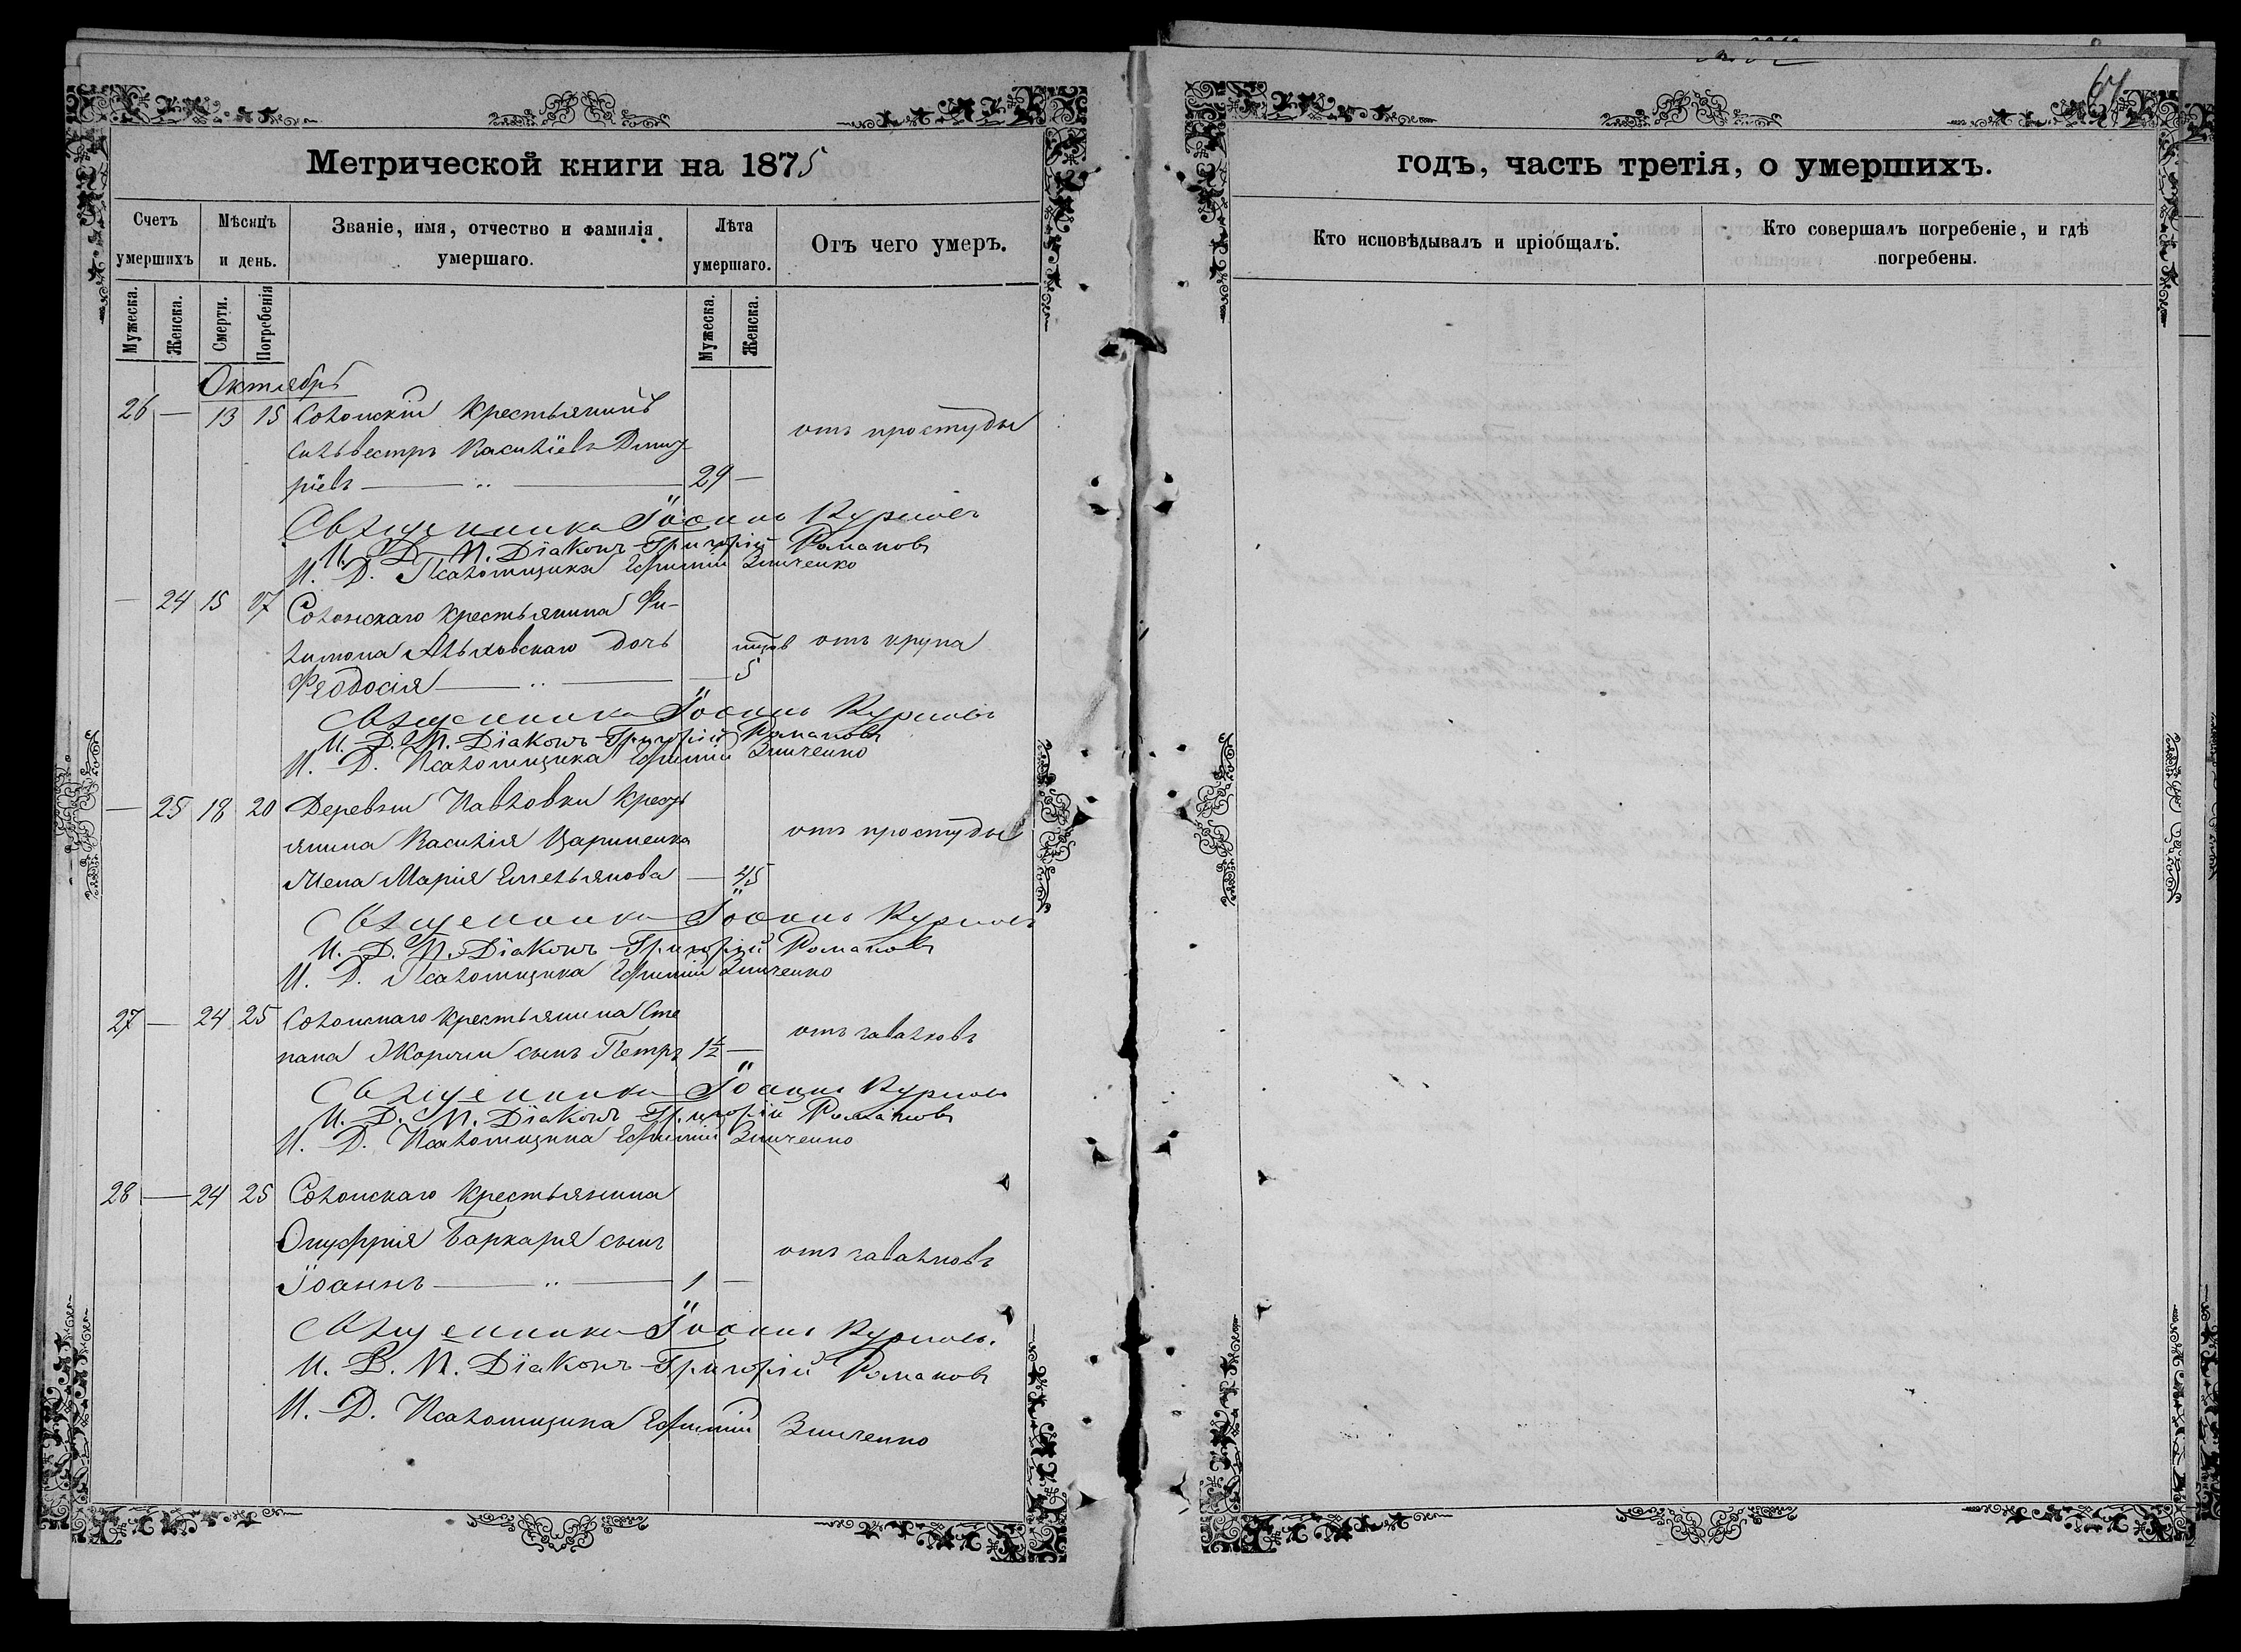 67
Метрической книги на 1875
годъ, часть третія, о умершихъ.
Счетъ умершихъ
Мѣсяцъ и день.
Званіе, имя, отчество и фамилія умершаго.
Лѣта умершаго.
Отъ чего умеръ.
Кто исповѣдывалъ и пріобщалъ.
Кто совершалъ погребеніе, и гдѣ погребены.
Мужеска. Женска. Смерти. Погребенія Мужеска. Женска.
Октябрь
26 — 13 15 Солонскій крестьянинъ
Сильвестръ Василіевъ Дмит-
ріевъ — 29 — отъ простуды
Священникъ Іоаннъ Куриловъ
И. Д. П. Діаконъ Григорій Романовъ
И. Д. Псаломщика Ефимій Зинченко
— 24 15 17 Солонскаго крестьянина Фи-
лимона дочь отъ крупа
Феодосія — — 5
Священникъ Іоаннъ Куриловъ
И. Д. П. Діаконъ Григорій Романовъ
И. Д. Псаломщика Ефимій Зинченко
— 25 18 20 Деревни Павловки крест
янина Василія Цариненка отъ простуды
жена Марія Емельянова — 45
Священникъ Іоаннъ Куриловъ
И. Д. П. Діаконъ Григорій Романовъ
И. Д. Псаломщика Ефимій Зинченко
27 — 24 25 Солонскаго крестьянина Сте
пана сынъ Петръ 1½ —
Священникъ Іоаннъ Куриловъ
И. Д. П. Діаконъ Григорій Романовъ
И. Д. Псаломщика Ефимій Зинченко
28 — 24 25 Солонскаго крестьянина
Онуфрія Баркаря сынъ
Іоаннъ — 1 —
Священникъ Іоаннъ Куриловъ.
И. Д. П. Діаконъ Григорій Романовъ
И. Д. Псаломщика Ефимій Зинченко